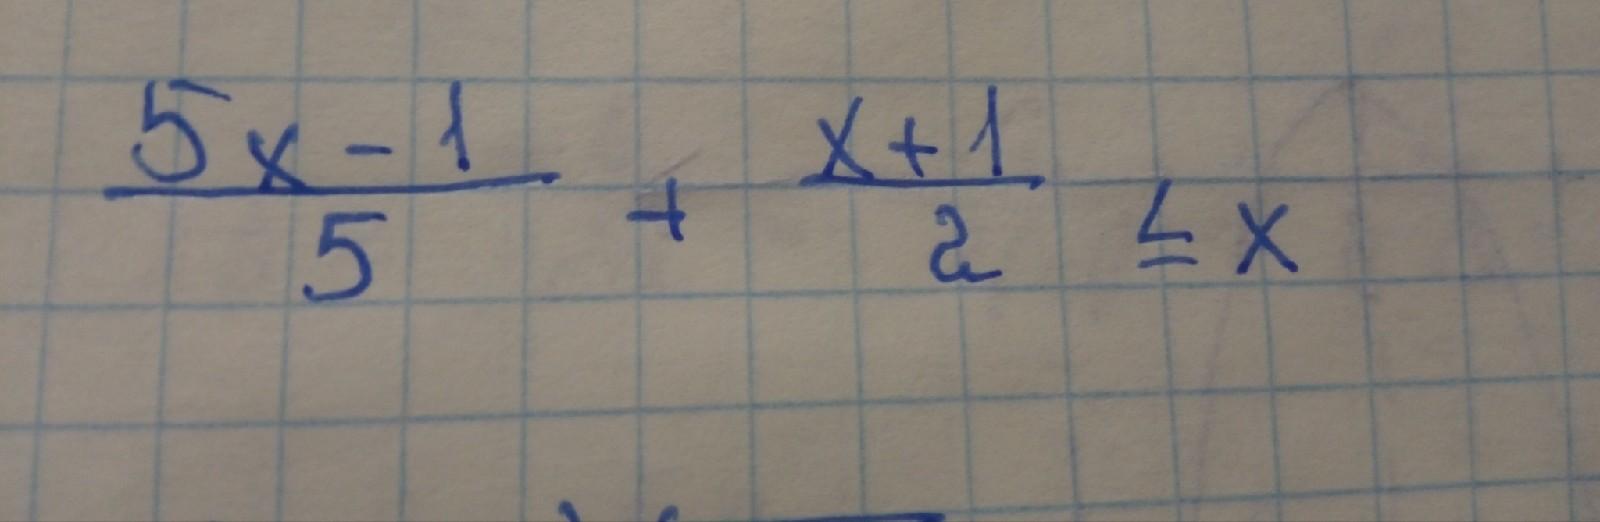 (5x - 1)/5 + (x + 1)/2 ≤ x